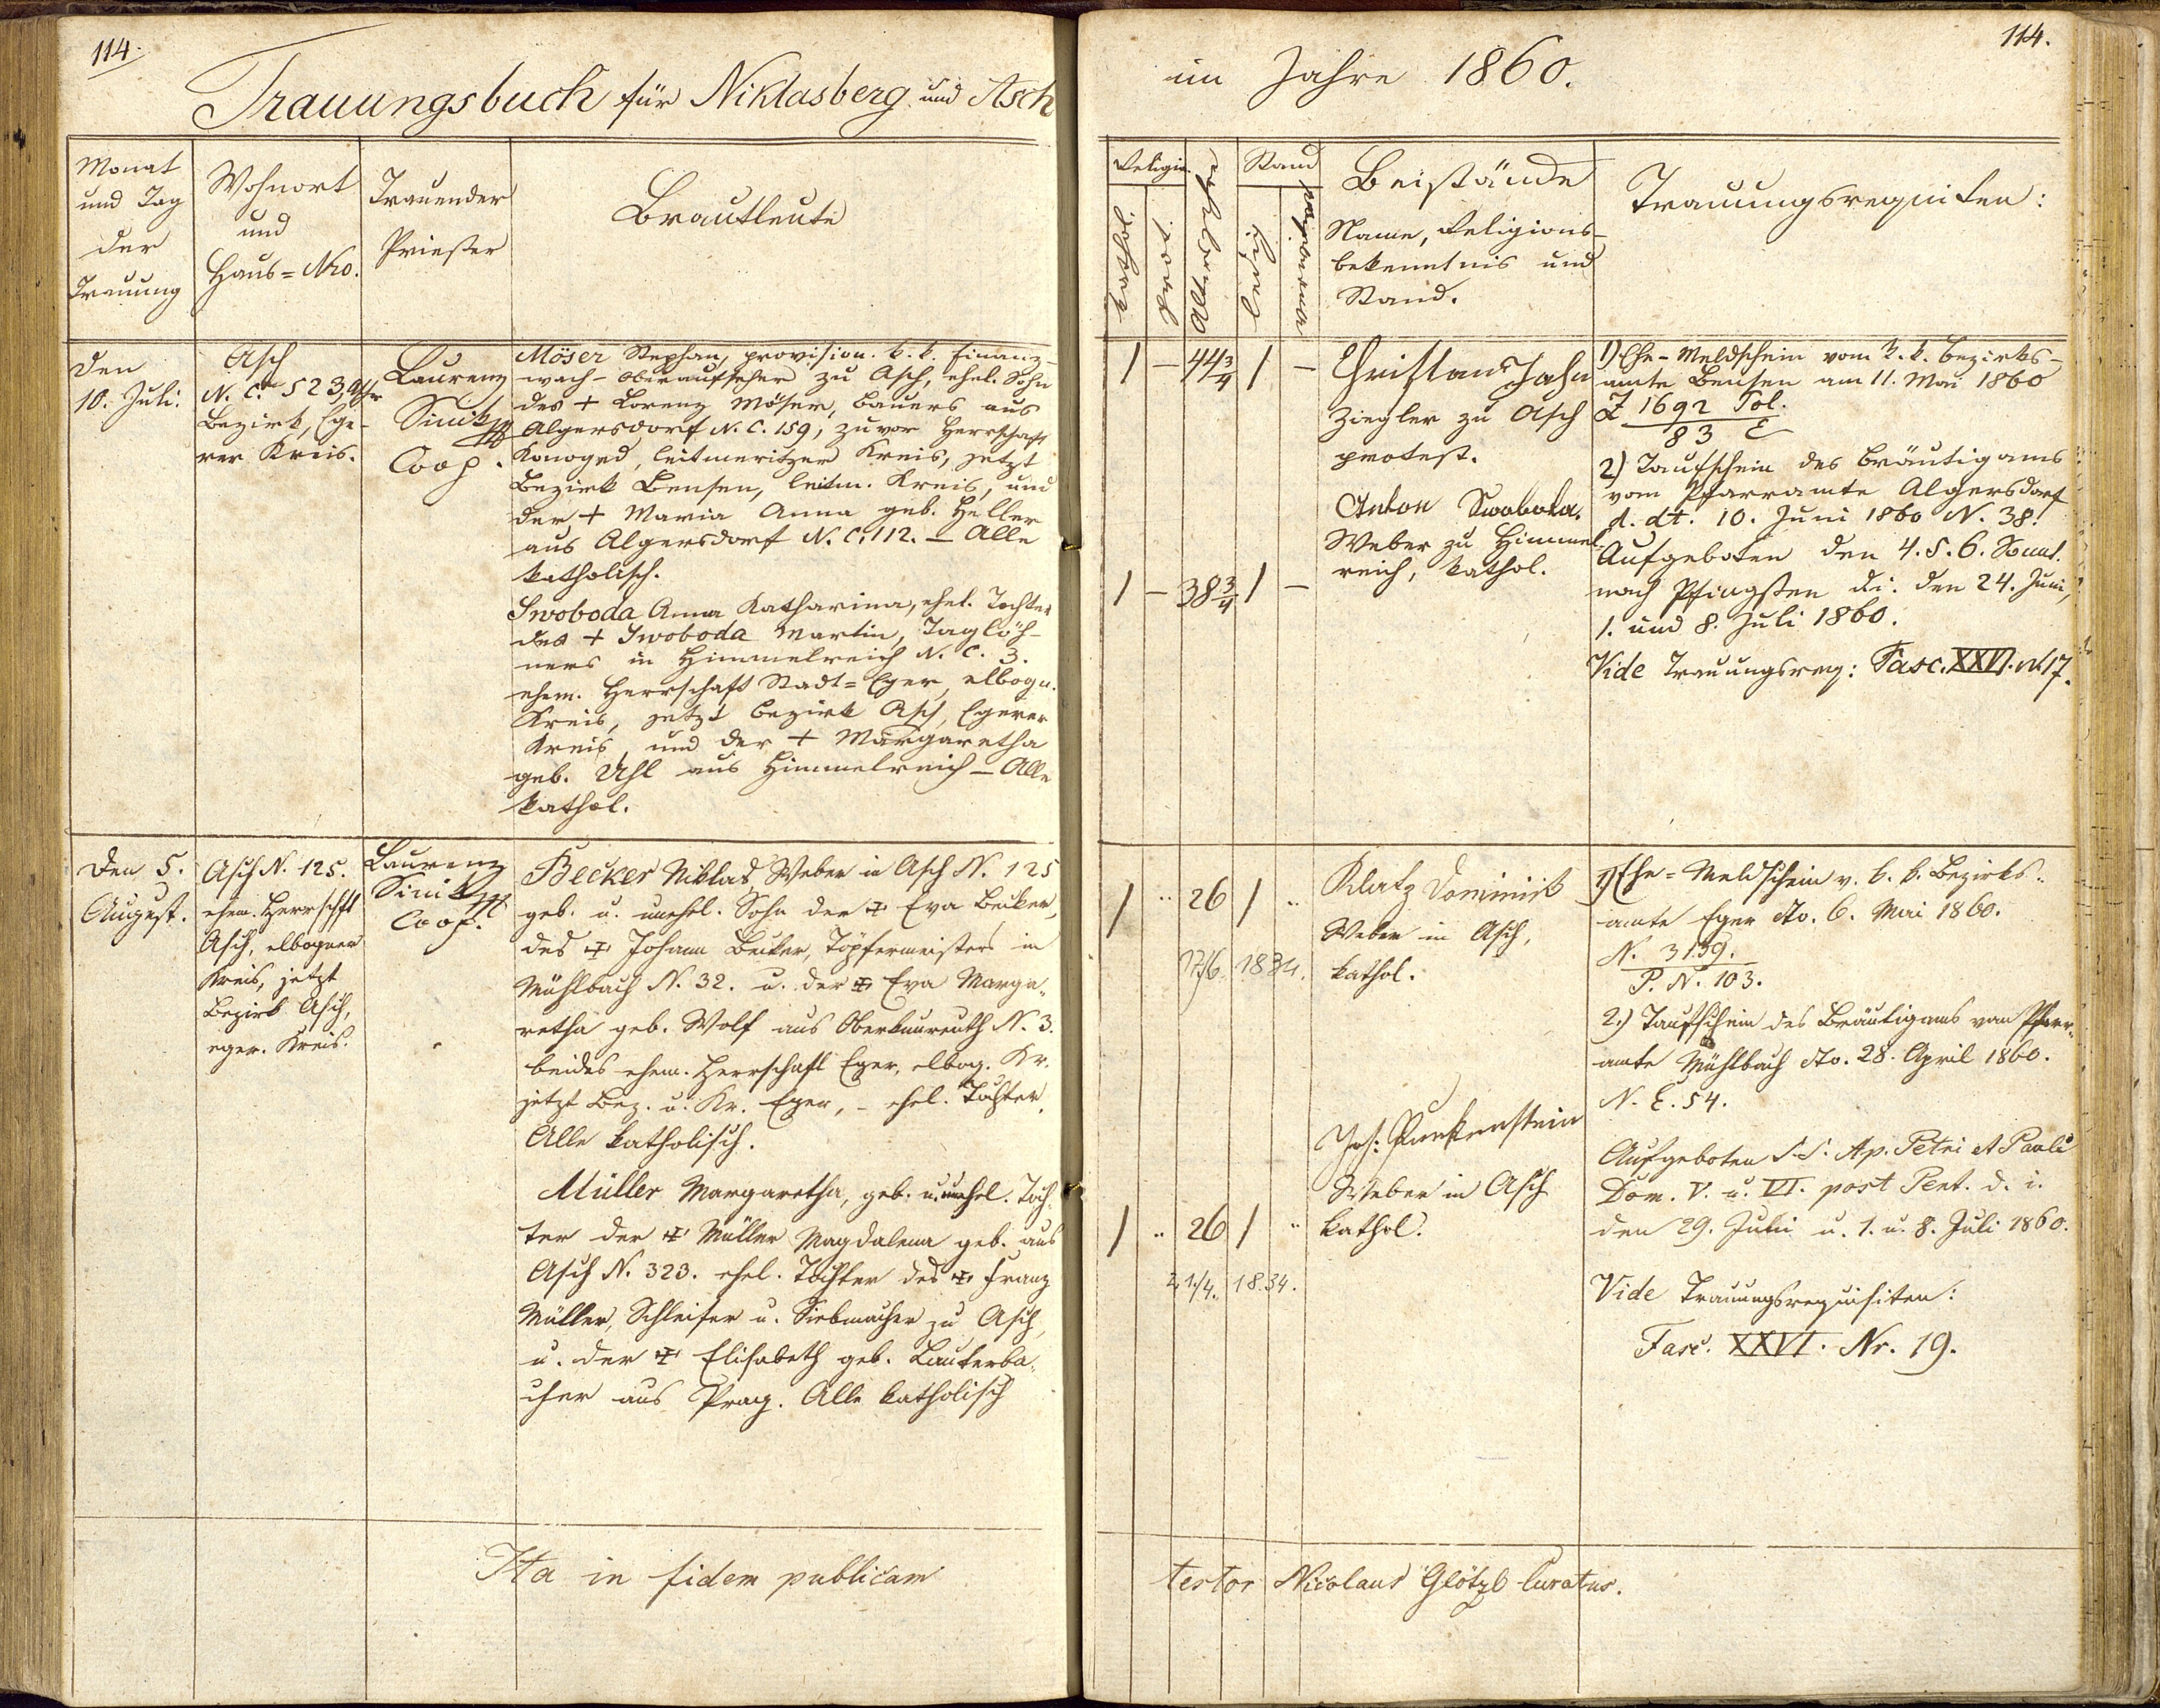 114.
Trauungsbuch für Niklasberg und Asch
Monat
und Tag
der
Trauung
Wohnort
und
Haus=Nro.
Trauender
Priester
Brautleute
Den
10. Juli.
Asch
N. C. 523, Asch
Bezirk, Ege-
rer Kreis.
Laurenz
Sinik
Coop.
Möser Stephan, provision. k. k. Finanz-
wach-Oberaufseher zu Asch, ehel. Sohn
des + Lorenz Möser, Bauers aus
Algersdorf N. C. 159, zuvor Herrschaft
Konoged, leitmeritzer Kreis, jetzt
Bezirk Bensen, leitm. Kreis, und
der + Maria Anna geb. Heller
aus Algersdorf N. C. 112. – Alle
katholisch.
Swoboda Anna Katharina, ehel. Tochter
des + Swoboda Martin, Taglöh-
ners in Himmelreich N. C. 3.
ehem. Herrschaft Stadt=Eger, elbogn.
Kreis, jetzt Bezirk Asch, Egerer
Kreis, und der + Margaretha
geb. Uhl aus Himmelreich – Alle
kathol.
Den 5.
August.
Asch N. 125.
ehem. Herrschft
Asch, elbogner
Kreis, jetzt
Bezirk Asch,
eger. Kreis.
Laurenz
Sinik
Coop.
Becker Niklas, Weber in Asch N. 125
geb. u. unehel. Sohn der + Eva Becker,
des + Johann Becker, Töpfermeisters in
Mühlbach N. 32. u. der + Eva Marga-
retha geb. Wolf aus Oberkunreuth N. 3.
beides ehem. Herrschaft Eger, elbog. Kr.
jetzt Bez. u. Kr. Eger, – ehel. Tochter.
Alle katholisch.
Müller Margaretha, geb. u. unehel. Toch-
ter der + Müller Magdalena geb. aus
Asch N. 323. ehel. Tochter des + Franz
Müller, Schleifer u. Siebmacher zu Asch,
u. der + Elisabeth geb. Lauterba-
cher aus Prag. Alle katholisch
Ita in fidem publicam
114.
im Jahre 1860.
Religion
Stand
Beistände
Name, Religions-
bekenntnis und
Stand.
Trauungsrequisiten:
1 – 44 3/4 1 –
Christian Jahn
Ziegler zu Asch
protest.
Anton Swoboda.
Weber zu Himmel-
reich, kathol.
1 – 38 3/4 1 –
1) Ehe-Meldschein vom k. k. Bezirks-
amte Bensen am 11. Mai 1860
Z 1692 Pol.
83 E
2) Taufschein des Bräutigams
vom Pfarramte Algersdorf
d. dt. 10. Juni 1860 N. 38.
Aufgeboten den 4. 5. 6. Sonnt.
nach Pfingsten d. i. den 24. Juni,
1. und 8. Juli 1860.
Vide Trauungsreq: Fasc. XXVI. N. 17.
1 .. 26 1 ..
17/6. 1834.
Klatz Dominik
Weber in Asch,
kathol.
Weber in Asch
kathol.
1 .. 26 1 ..
21./4. 1834.
1) Ehe=Meldschein v. k. k. Bezirks-
amte Eger dto. 6. Mai 1860.
N. 3159.
P. N. 103.
2.) Taufschein des Bräutigams vom Pfarr-
amte Mühlbach dto. 28. April 1860.
N. E. 54.
Aufgeboten S. S. Ap. Petri et Pauli
Dom. V. u. VI. post Pent. d. i.
den 29. Juni u. 1. u. 8. Juli 1860.
Vide Trauungsrequisiten:
Fasc. XXVI. Nr. 19.
testor Nicolaus Glötzl Curatus.